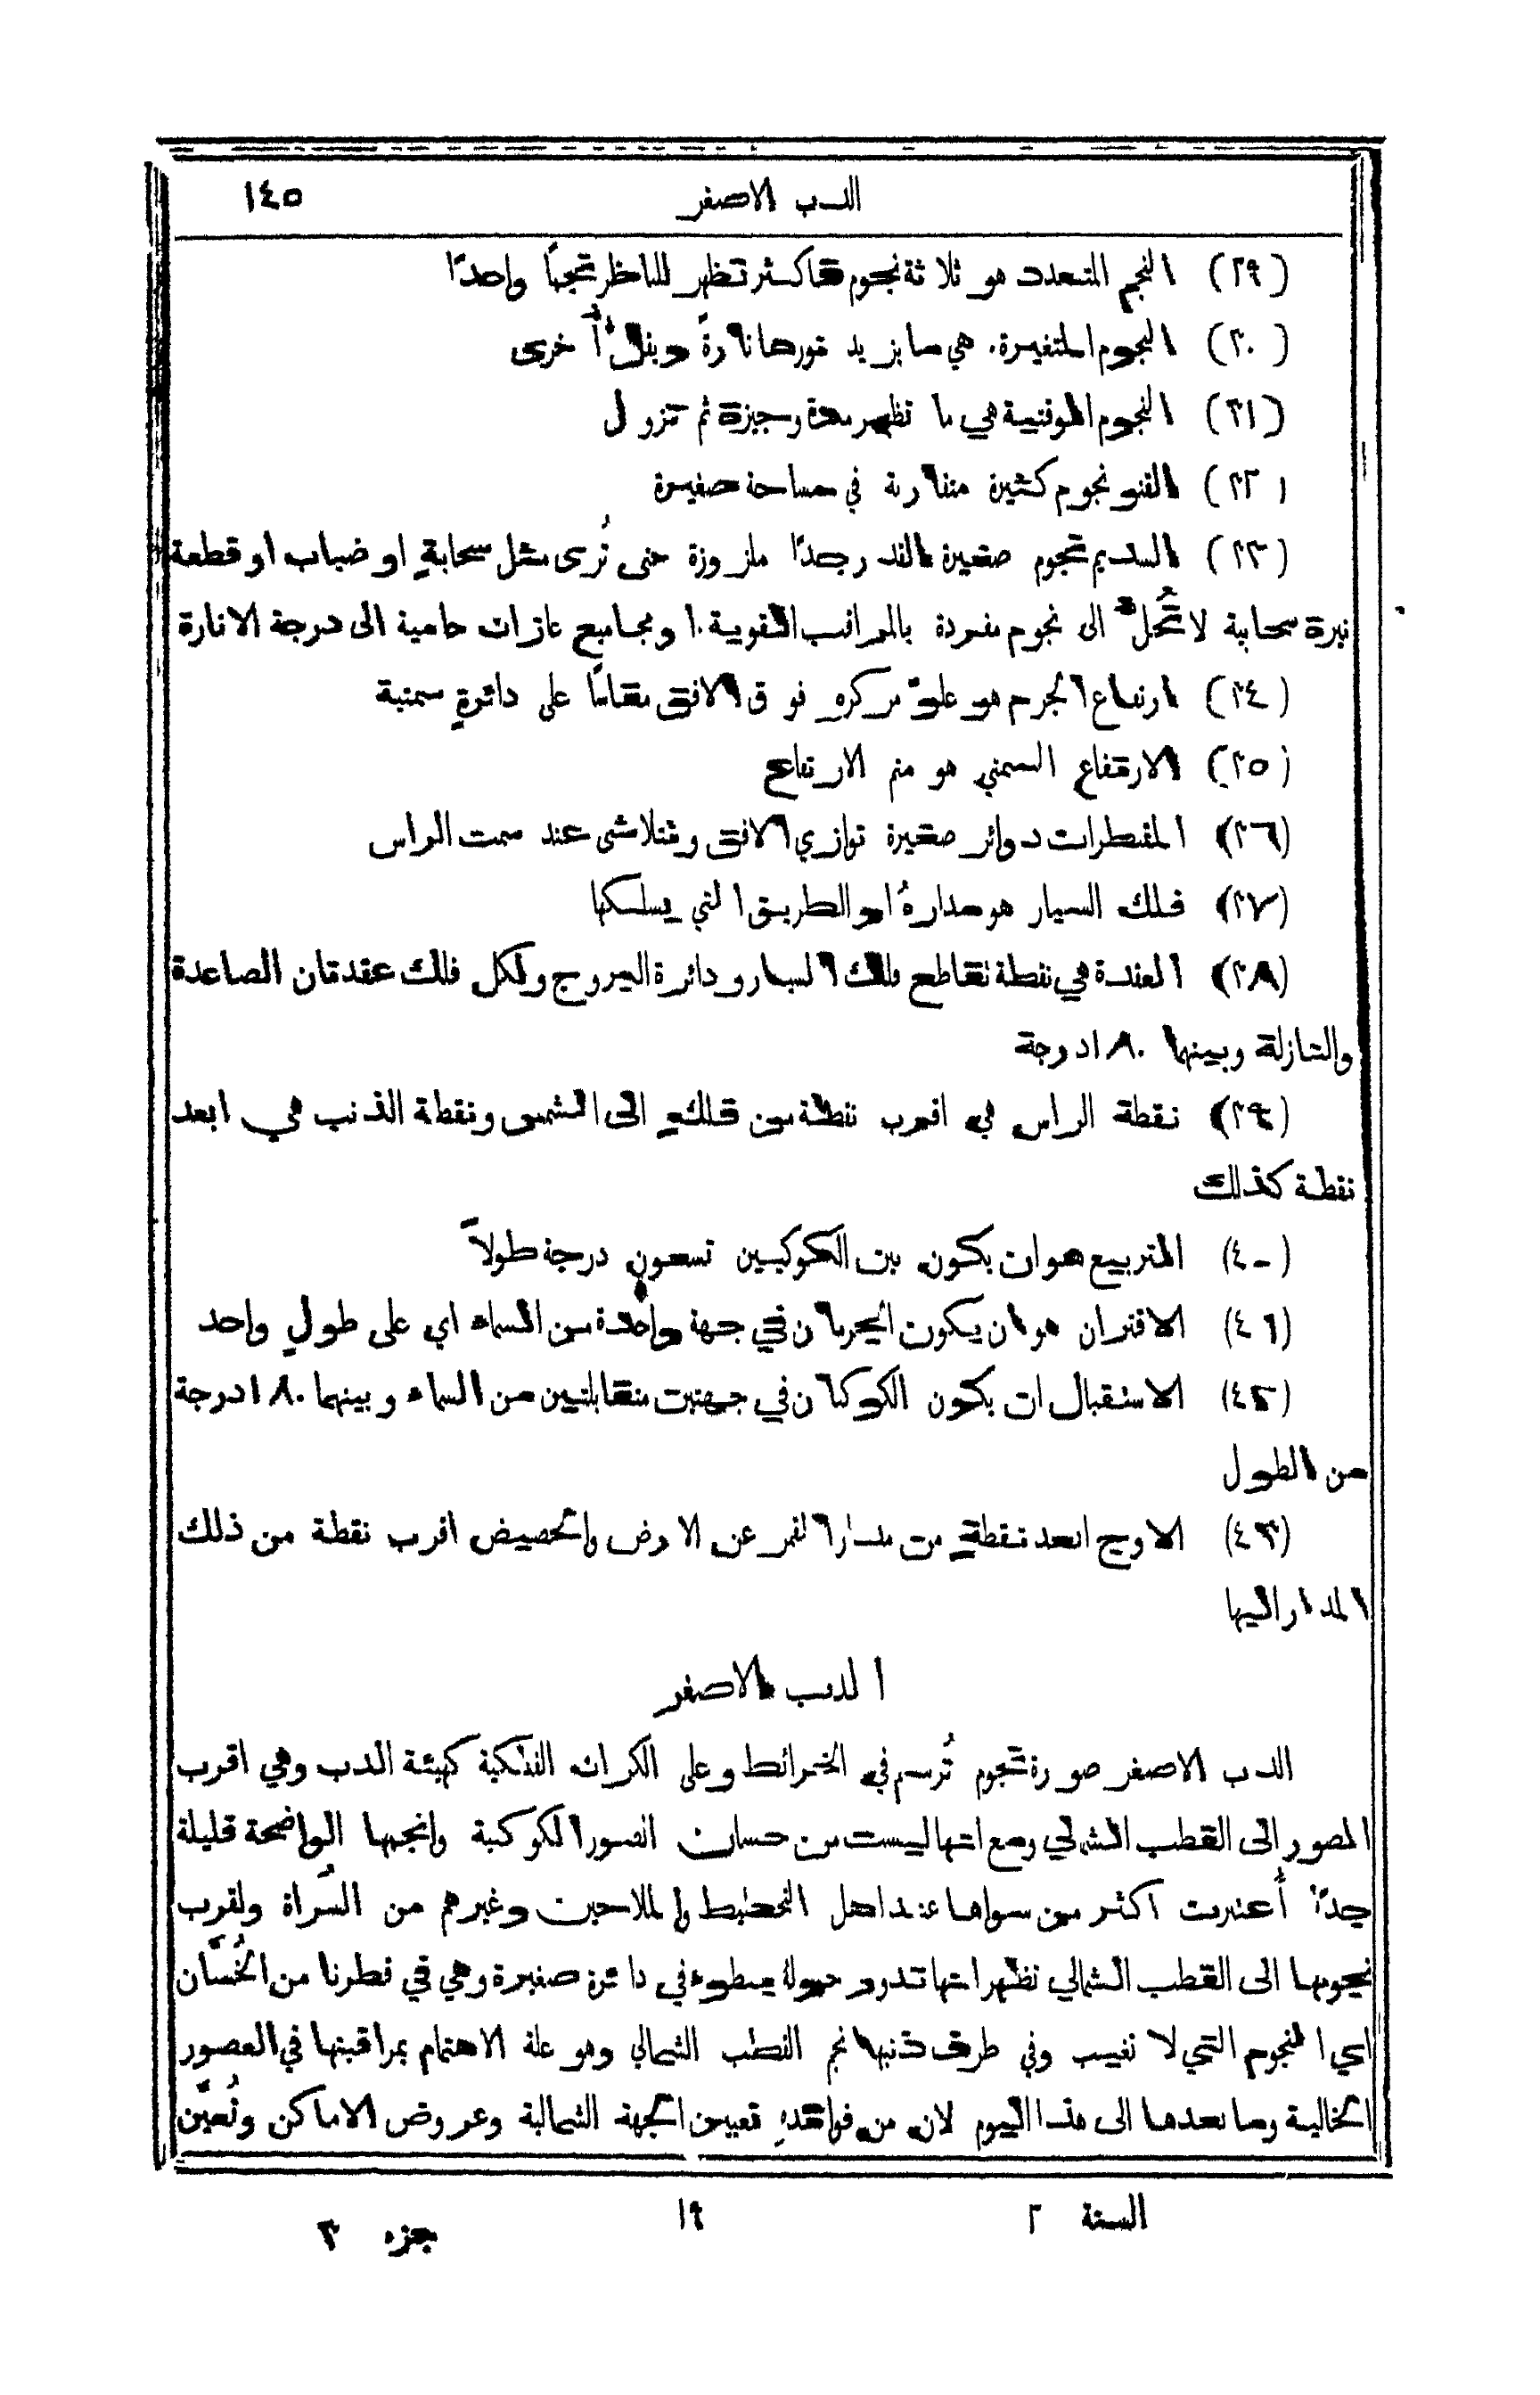 الدب الاصغر ١٤٥
(٢٩) النجم المتعدد هو ثلاثة نجوم فاكثر تظهر للناظر نجمًا واحدًا
(٣٠) النجوم المتغيرة. هي ما يزيد نورها تارةً ويقلُّ أُخرى
(٣١) النجوم الموقتية هي ما تظهر مدة وجيزة ثم تزول
(٣٢) القنو نجوم كثيرة متقاربة في مساحة صغيرة
(٣٣) السديم نجوم صغيرة القدر جدًا ملزوزة حتى تُرى مثل سحابةٍ او ضباب او قطعة
نيرة سحابية لا تُحَلُّ الى نجوم مفردة بالمراقب القوية. او مجاميع غازات حامية الى درجة الانارة
(٣٤) ارتفاع الجرم هو علوّ مركزهِ فوق الافق مقاسًا على دائرةٍ سمتية
(٣٥) الارتفاع السمتي هو متمم الارتفاع
(٣٦) المقنطرات دوائر صغيرة توازي الافق وتتلاشى عند سمت الراس
(٣٧) فلك السيار هو مدارهُ او الطريق التي يسلكها
(٣٨) العقدة هي نقطة تقاطع فلك السيار ودائرة البروج ولكل فلك عقدتان الصاعدة
والنازلة وبينهما ١٨٠ درجة
(٣٩) نقطة الراس هي اقرب نقطة من فلكهِ الى الشمس ونقطة الذنب هي ابعد
نقطة كذلك
(٤٠) التربيع هو ان يكون بين الكوكبين تسعون درجة طولاً
(٤١) الاقتران هو ان يكون الجرمان في جهة واحدة من السماء اي على طولٍ واحد
(٤٢) الاستقبال ان يكون الكوكبان في جهتين متقابلتين من السماء وبينهما ١٨٠ درجة
من الطول
(٤٣) الاوج ابعد نقطةٍ من مدار القمر عن الارض والحضيض اقرب نقطة من ذلك
المدار اليها
الدب الاصغر
الدب الاصغر صورة نجوم تُرسم في الخرائط وعلى الكرات الفلكية كهيئة الدب وهي اقرب
الصور الى القطب الشمالي ومع انها ليست من حسان الصور الكوكبية وانجمها الواضحة قليلة
جدًا أُعتبرت اكثر من سواها عند اهل التخطيط والملاحين وغيرهم من السُراة ولقرب
نجومها الى القطب الشمالي تظهر انها تدور حولهُ ببطوء في دائرة صغيرة وهي في قطرنا من الخُنَّسان
اي النجوم التي لا تغيب وفي طرف ذنبها نجم القطب الشمالي وهو علة الاهتمام بمراقبتها في العصور
الخالية وما بعدها الى هذا اليوم لان من فوائدهِ تعيين الجهة الشمالية وعروض الاماكن وتُعيَّن
السنة ٢ ١٩ جزء ٣